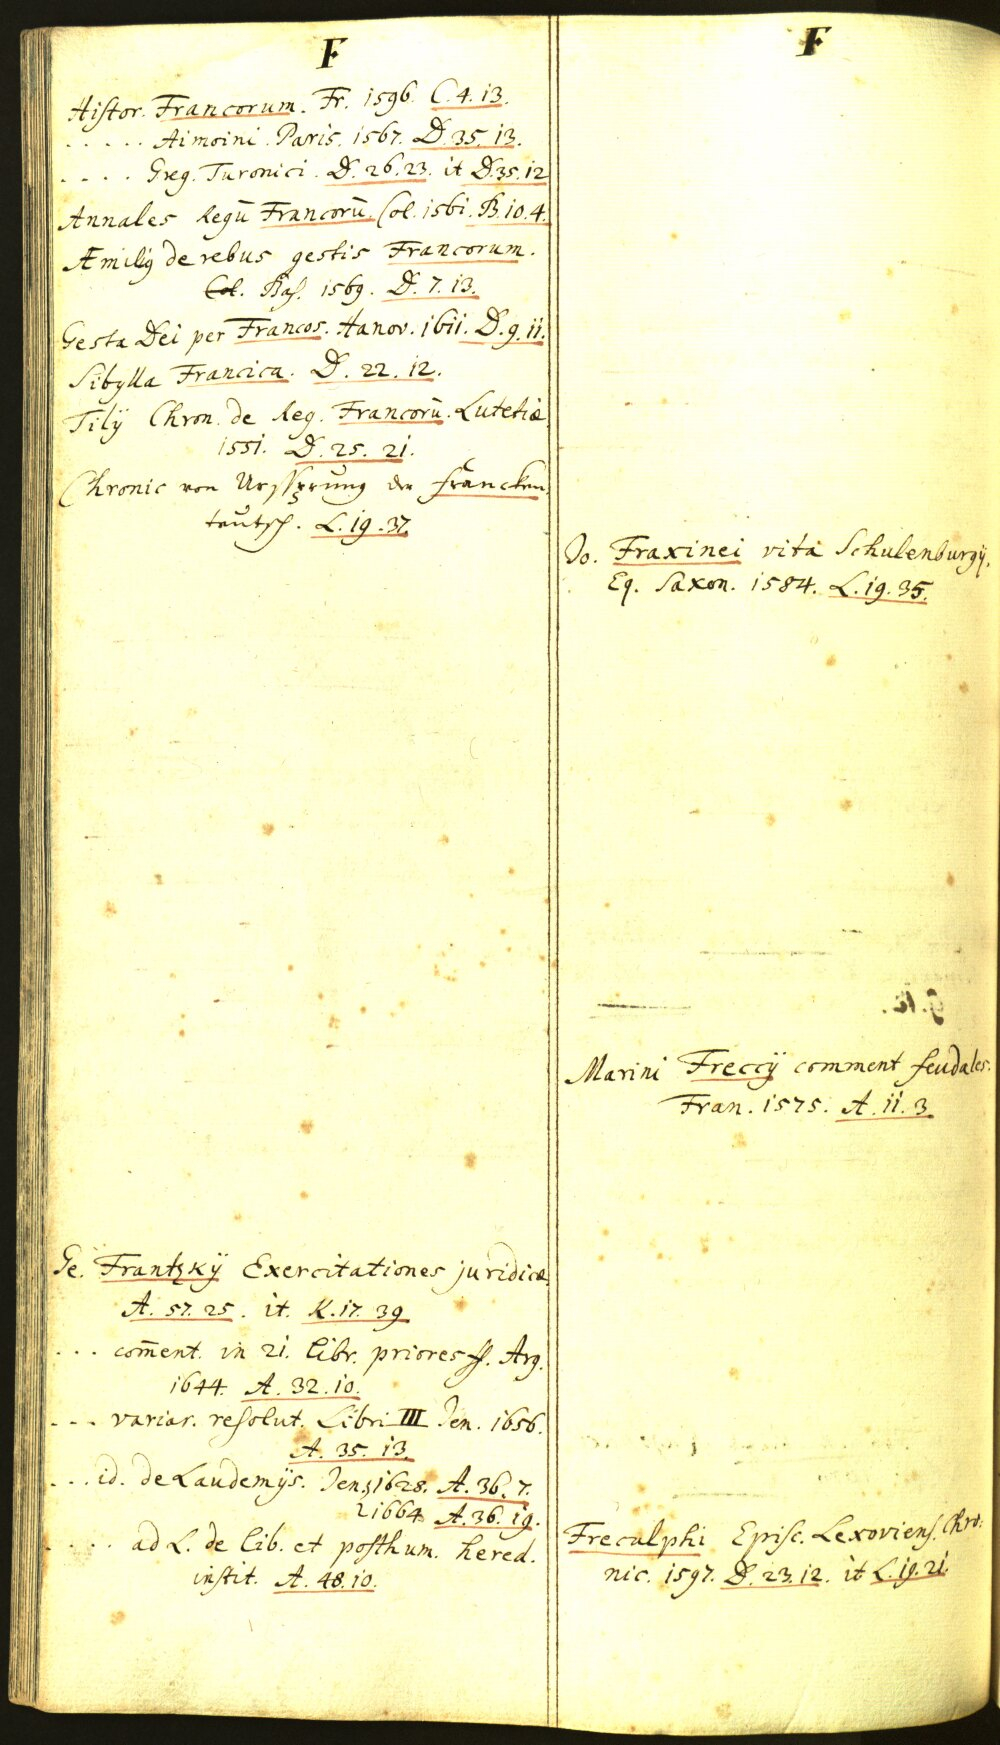 F
Histor. Francorum. Fr. 1596. C. 4. 13.
. . . . . Aimoini. Paris. 1567. D. 35. 13.
. . . . Greg. Turonici. D. 26. 23. it D. 35. 12
Annales Regū Francorū. Col. 1561. B. 10. 4.
Æmilÿ de rebus gestis Francorum.
Col. Bas. 1569. D. 7. 13.
Gesta Dei per Francos. Hanov. 1611. D. 9. 11.
Sibylla Francica. D. 22. 12.
Tilÿ Chron. de Reg. Francorū. Lutetiæ
1551. D. 25. 21.
Chronic von Urssprung der francken
teutsch. L. 19. 37.
Ge. Frantzkÿ Exercitationes juridicæ
A. 57. 25. it. K. 17. 39
. . . com̄ent. in 21. libr. priores ff. Arg.
1644. A. 32. 10.
. . . variar. resolut. Libri III Jen. 1656.
A. 35. 13.
. . . id. de Laudemÿs. Jen. 1628. A. 36. 7.
1664 A. 36. 19.
. . . . ad L. de lib. et posthum. hered.
instit. A. 48. 10.
F
Jo. Fraxinei vita Schulenburgÿ.
Eq. Saxon. 1584. L. 19. 35.
Marini Freccÿ comment feudales.
Fran. 1575. A. 11. 3
Freculphi Episc. Lexoviens. Chro:
nic. 1597. D. 23. 12. it L. 19. 21.